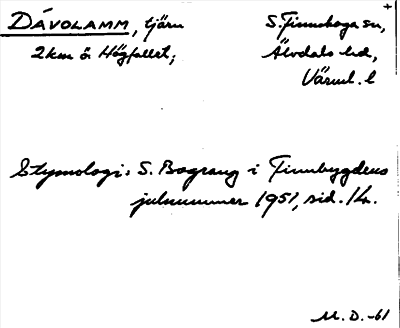 DÁVOLAMM, tjärn
S. Finnskoga sn,
2 km ö. Högfallet;
Älvdals hd,
Värml. l
Etymologi: S. Bograng i Finnbygdens
julnummer 1951, sid. 14.
M. D. -61